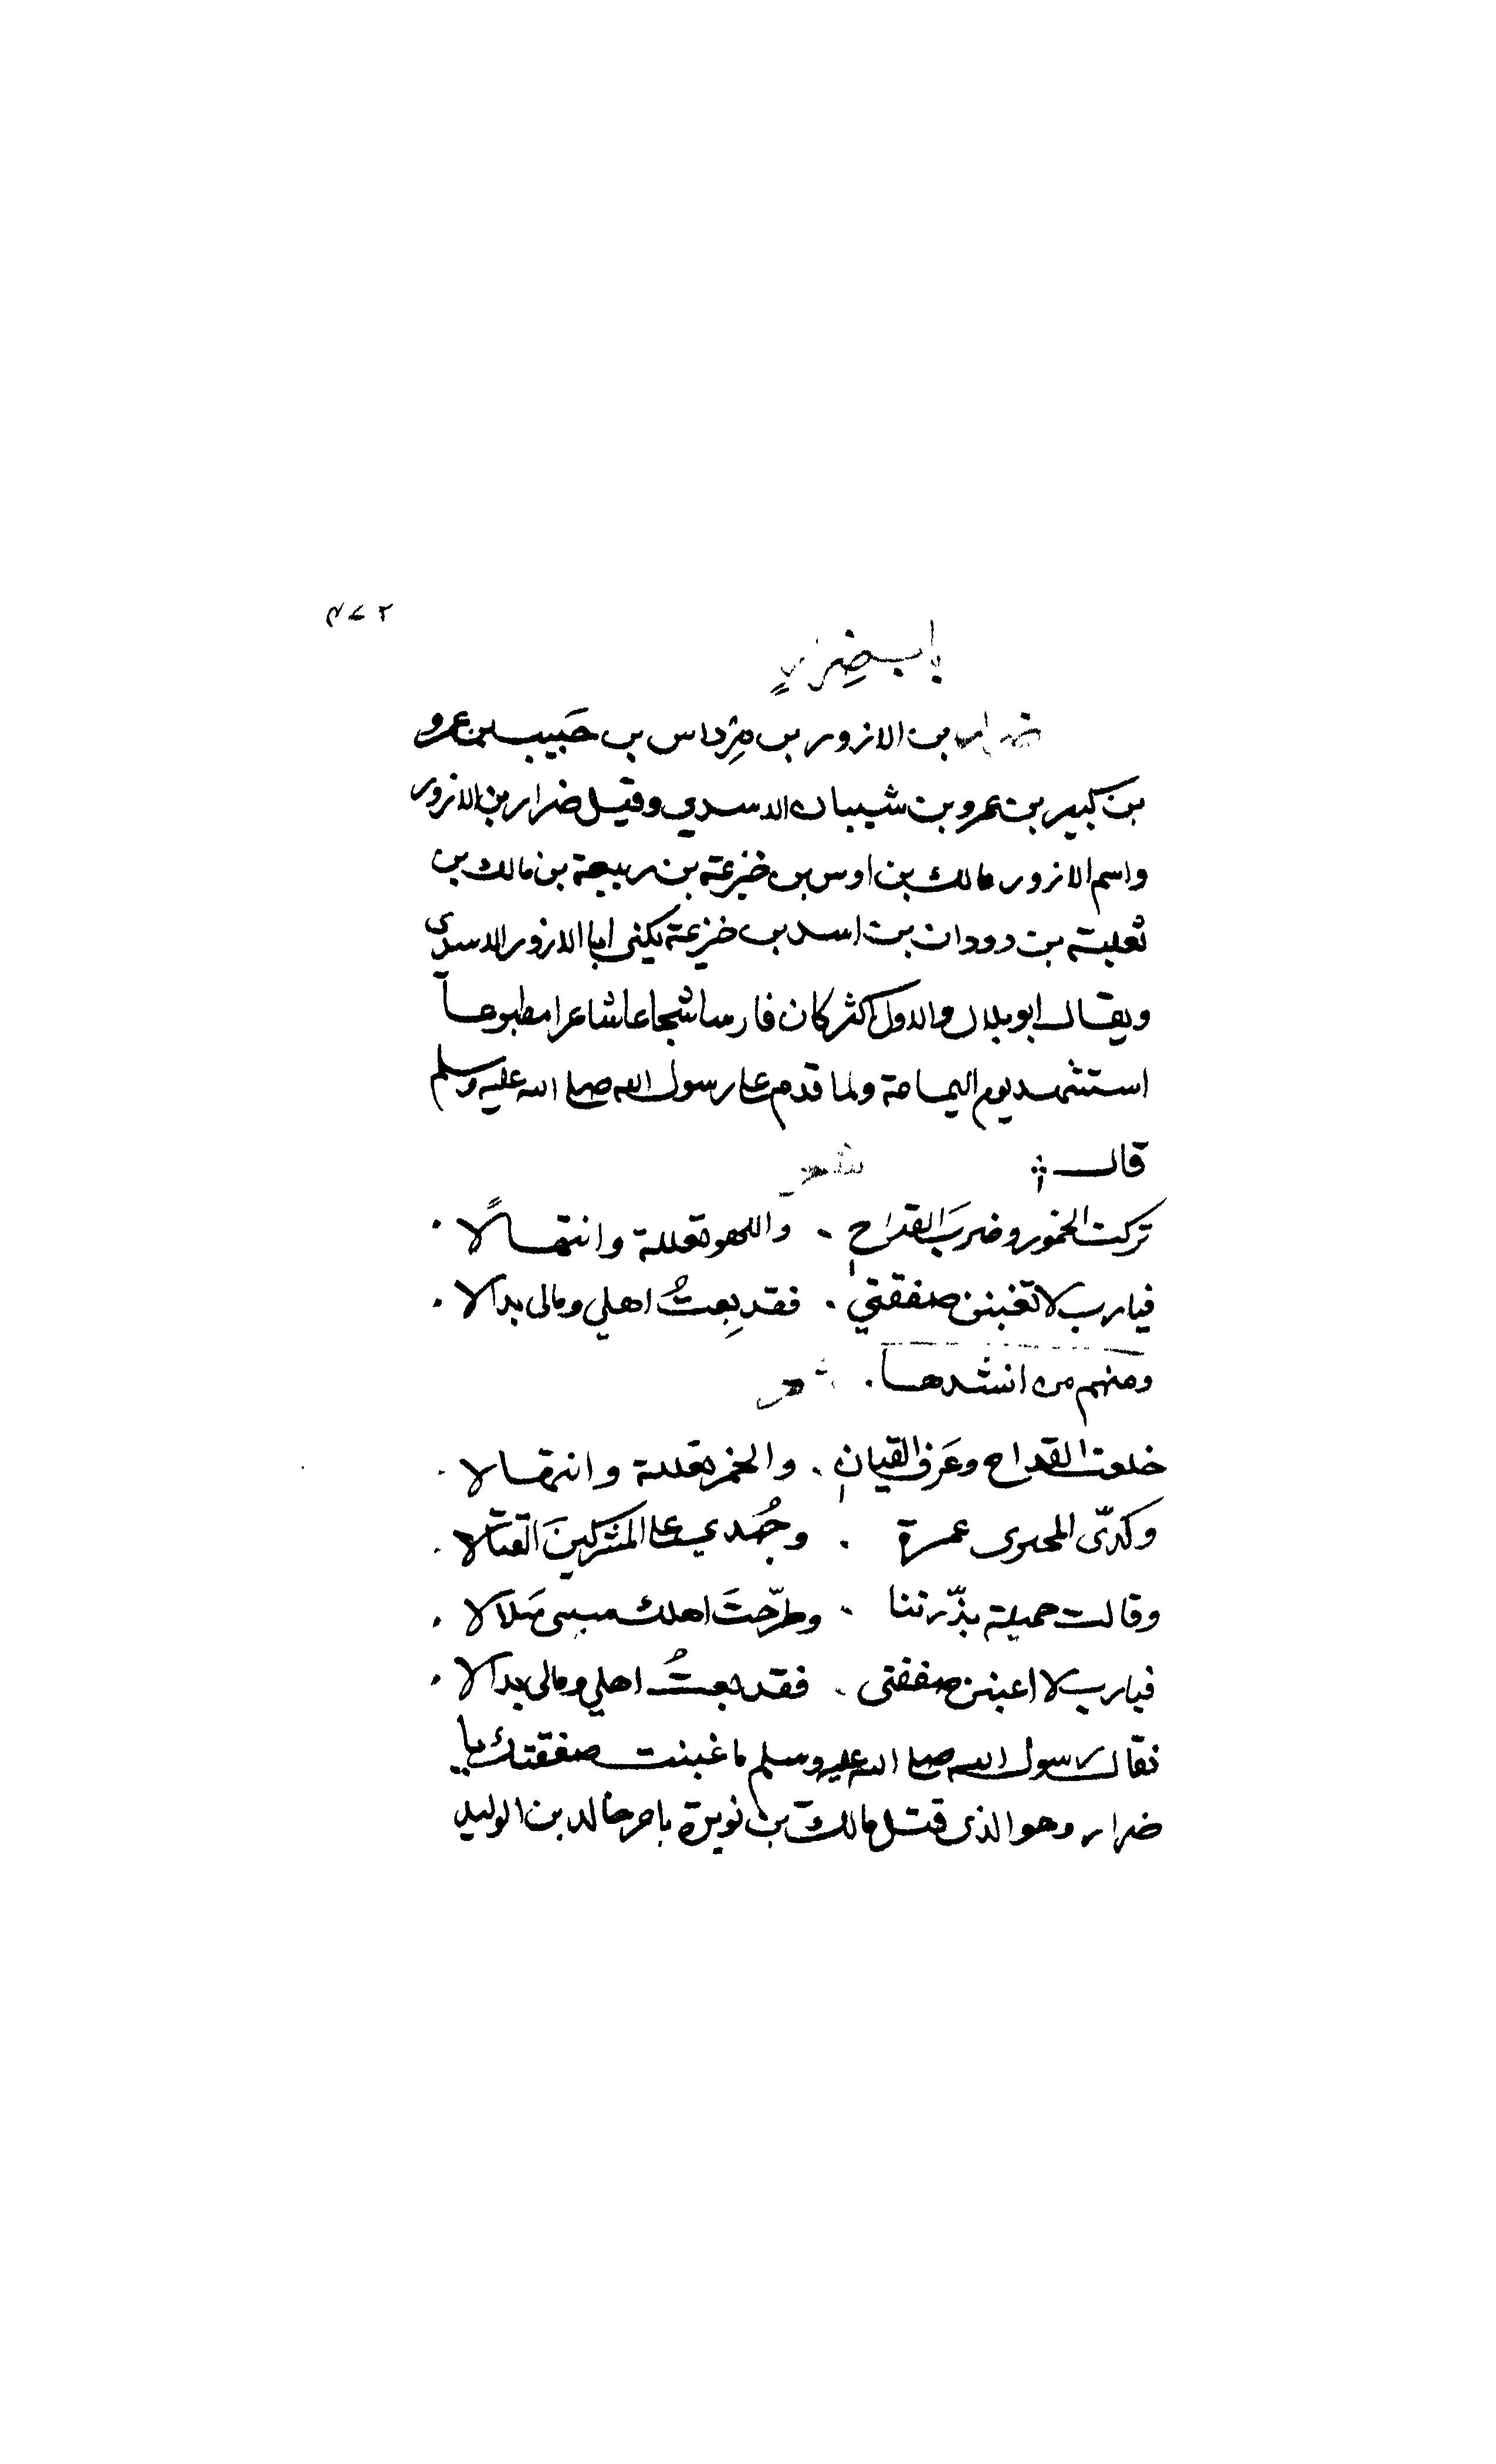 ٢٧٢
باب ضرار
ضرار بن الازور بن مِرْداس بن حَبيب بن عمرو
بن كبير بن عمرو بن شيبان الاسدي وقيل ضرار بن الازور
واسم الازور مالك بن اوس بن خزيمة بن ربيعة بن مالك بن
ثعلبة بن دودان بن اسد بن خزيمة يكنى ابا الازور الاسدى
ويقال ابو بلال والاول اكثر كان فارسا شجاعا شاعرا مطبوعاً
استشهد يوم اليمامة ولما قدم على رسول الله صلى الله عليه وسلم
قال شعر
تركت الخمور وضربَ القداحِ . واللهو تعللة وانتهالًا .
فيارب لا تغبنن صفقتي . فقد بِعتُ اهلي ومالى بدالا .
ومنهم من انشدها . شعر
خلعت القداح وعَزف القيانِ . والخمر تعللة وانتهالا .
وكرّى المحبر فى غمرة . وجُهدي على المشركينَ القتالا .
وقالت جميلة بذّرتنا . وطرّحتَ اهلك شتى شلالا .
فيارب لا اغبنن صفقتى . فقد بعتُ اهلي ومالى بدالا .
فقال رسول الله صلى الله عليه وسلم ما غبنت صفقتك يا
ضرار وهو الذى قتل مالك بن نويرة بامر خالد بن الوليد